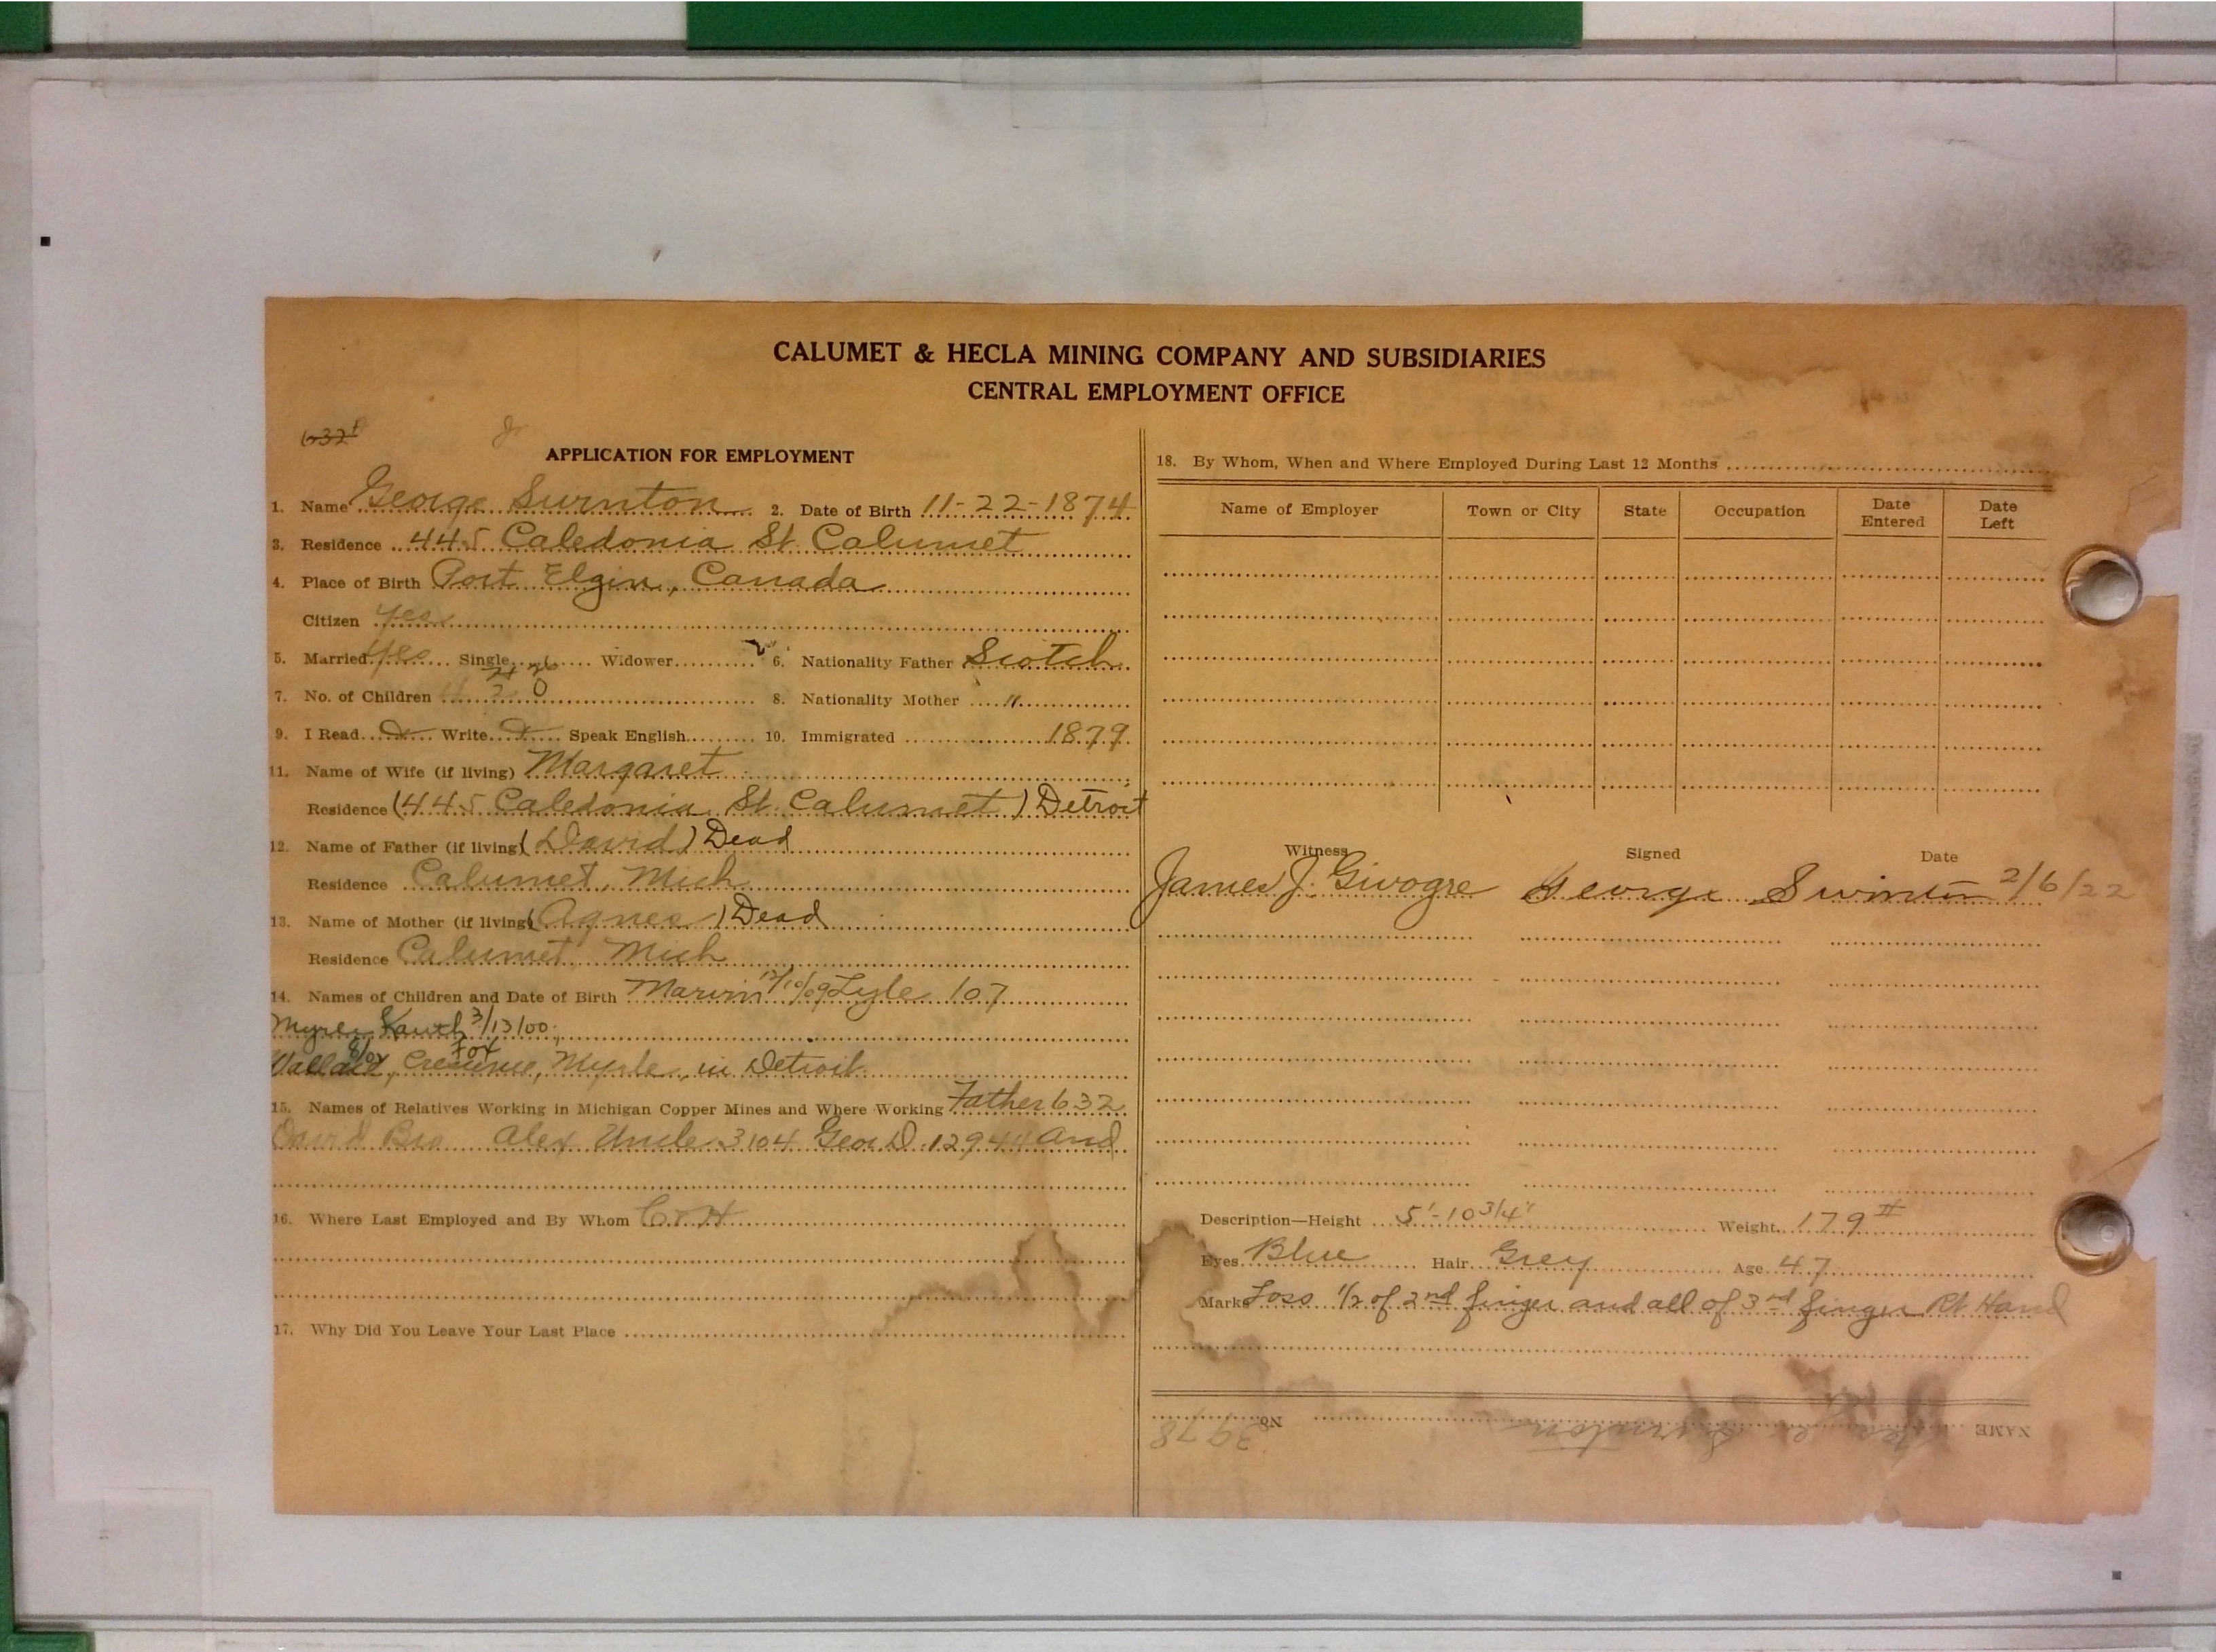 CALUMET & HECLA MINING COMPANY AND SUBSIDIARIES
CENTRAL EMPLOYMENT OFFICE
632
APPLICATION FOR EMPLOYMENT
1. Name George Swinton 2. Date of Birth 11-22-1874
3. Residence 445 Caledonia St. Calumet
4. Place of Birth Port Elgin, Canada
Citizen yes
5. Married yes Single Widower 6. Nationality Father Scotch
7. No. of Children 0 8. Nationality Mother "
9. I Read Write Speak English 10. Immigrated 1879
11. Name of Wife (if living) Margaret
Residence (445 Caledonia St. Calumet) Detroit
12. Name of Father (if living) (David) Dead
Residence Calumet, Mich
13. Name of Mother (if living) (Agnes) Dead
Residence Calumet Mich
14. Names of Children and Date of Birth Marvin 12/10/09 Lyle 107
3/13/00
Wallace, Myrle, in Detroit
15. Names of Relatives Working in Michigan Copper Mines and Where Working Father 632
David Bro Alex Uncle 3104 Geo D. and
16. Where Last Employed and By Whom C & H
17. Why Did You Leave Your Last Place
18. By Whom, When and Where Employed During Last 12 Months
Name of Employer Town or City State Occupation Date Entered Date Left
Witness Signed Date
James J. Givogre George Swinton 2/6/22
Description—Height 5'-10 3/4" Weight 179 #
Eyes Blue Hair Grey Age 47
Marks Loss 1/2 of 2nd finger and all of 3rd finger Rt Hand
NAME Swinton No. 3978